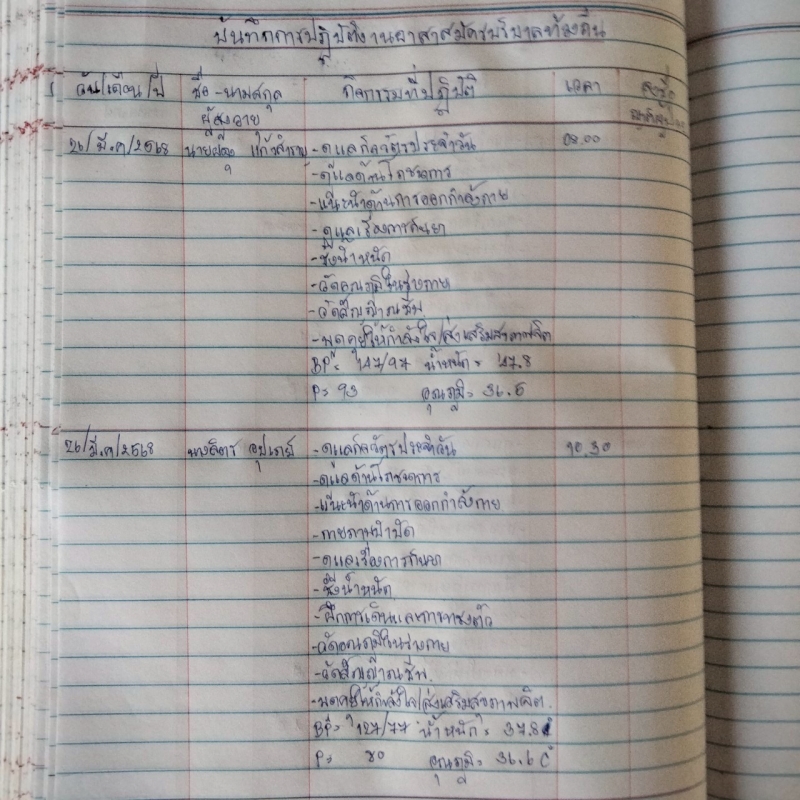 บันทึกการปฏิบัติงานอาสาสมัครบริบาลท้องถิ่น
วัน/เดือน/ปี ชื่อ-นามสกุล กิจกรรมที่ปฏิบัติ เวลา ลงชื่อ
ผู้สูงอายุ
26/มี.ค/2568 นาย แก้วสำราญ -ดูแลกิจวัตรประจำวัน 08.00
-ดูแลด้านโภชนาการ
-แนะนำด้านการออกกำลังกาย
-ดูแลเรื่องการกินยา
-ชั่งน้ำหนัก
-วัดอุณภูมิในร่างกาย
-วัดสัญญาณชีพ
-พูดคุยให้กำลังใจ/ส่งเสริมสุขภาพจิต
BP= 147/97 น้ำหนัก= 47.8
P= 93 อุณภูมิ= 36.5
26/มี.ค/2568 นางจิตร อุปเตย์ -ดูแลกิจวัตรประจำวัน 10.30
-ดูแลด้านโภชนาการ
-แนะนำด้านการออกกำลังกาย
-กายภาพบำบัด
-ดูแลเรื่องการกินยา
-ชั่งน้ำหนัก
-ฝึกการเดินและการทรงตัว
-วัดอุณภูมิในร่างกาย
-วัดสัญญาณชีพ.
-พูดคุยให้กำลังใจ/ส่งเสริมสุขภาพจิต.
BP= 127/77 น้ำหนัก= 37.8
P= 80 อุณภูมิ= 36.6 C°